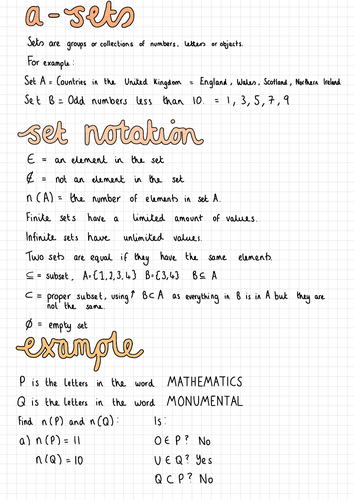 a - sets
Sets are groups or collections of numbers, letters or objects.
For example:
Set A = Countries in the United Kingdom = England, Wales, Scotland, Northern Ireland
Set B = Odd numbers less than 10. = 1, 3, 5, 7, 9
set notation
∈ = an element in the set
∉ = not an element in the set
n(A) = the number of elements in set A.
Finite sets have a limited amount of values.
Infinite sets have unlimited values.
Two sets are equal if they have the same elements.
⊆ = subset, A={1,2,3,4} B={3,4} B⊆A
⊂ = proper subset, using↑ B⊂A as everything in B is in A but they are
not the same.
∅ = empty set
example
P is the letters in the word MATHEMATICS
Q is the letters in the word MONUMENTAL
Find n(P) and n(Q): Is:
a) n(P) = 11 O∈P? No
n(Q) = 10 U∈Q? Yes
Q⊂P? No